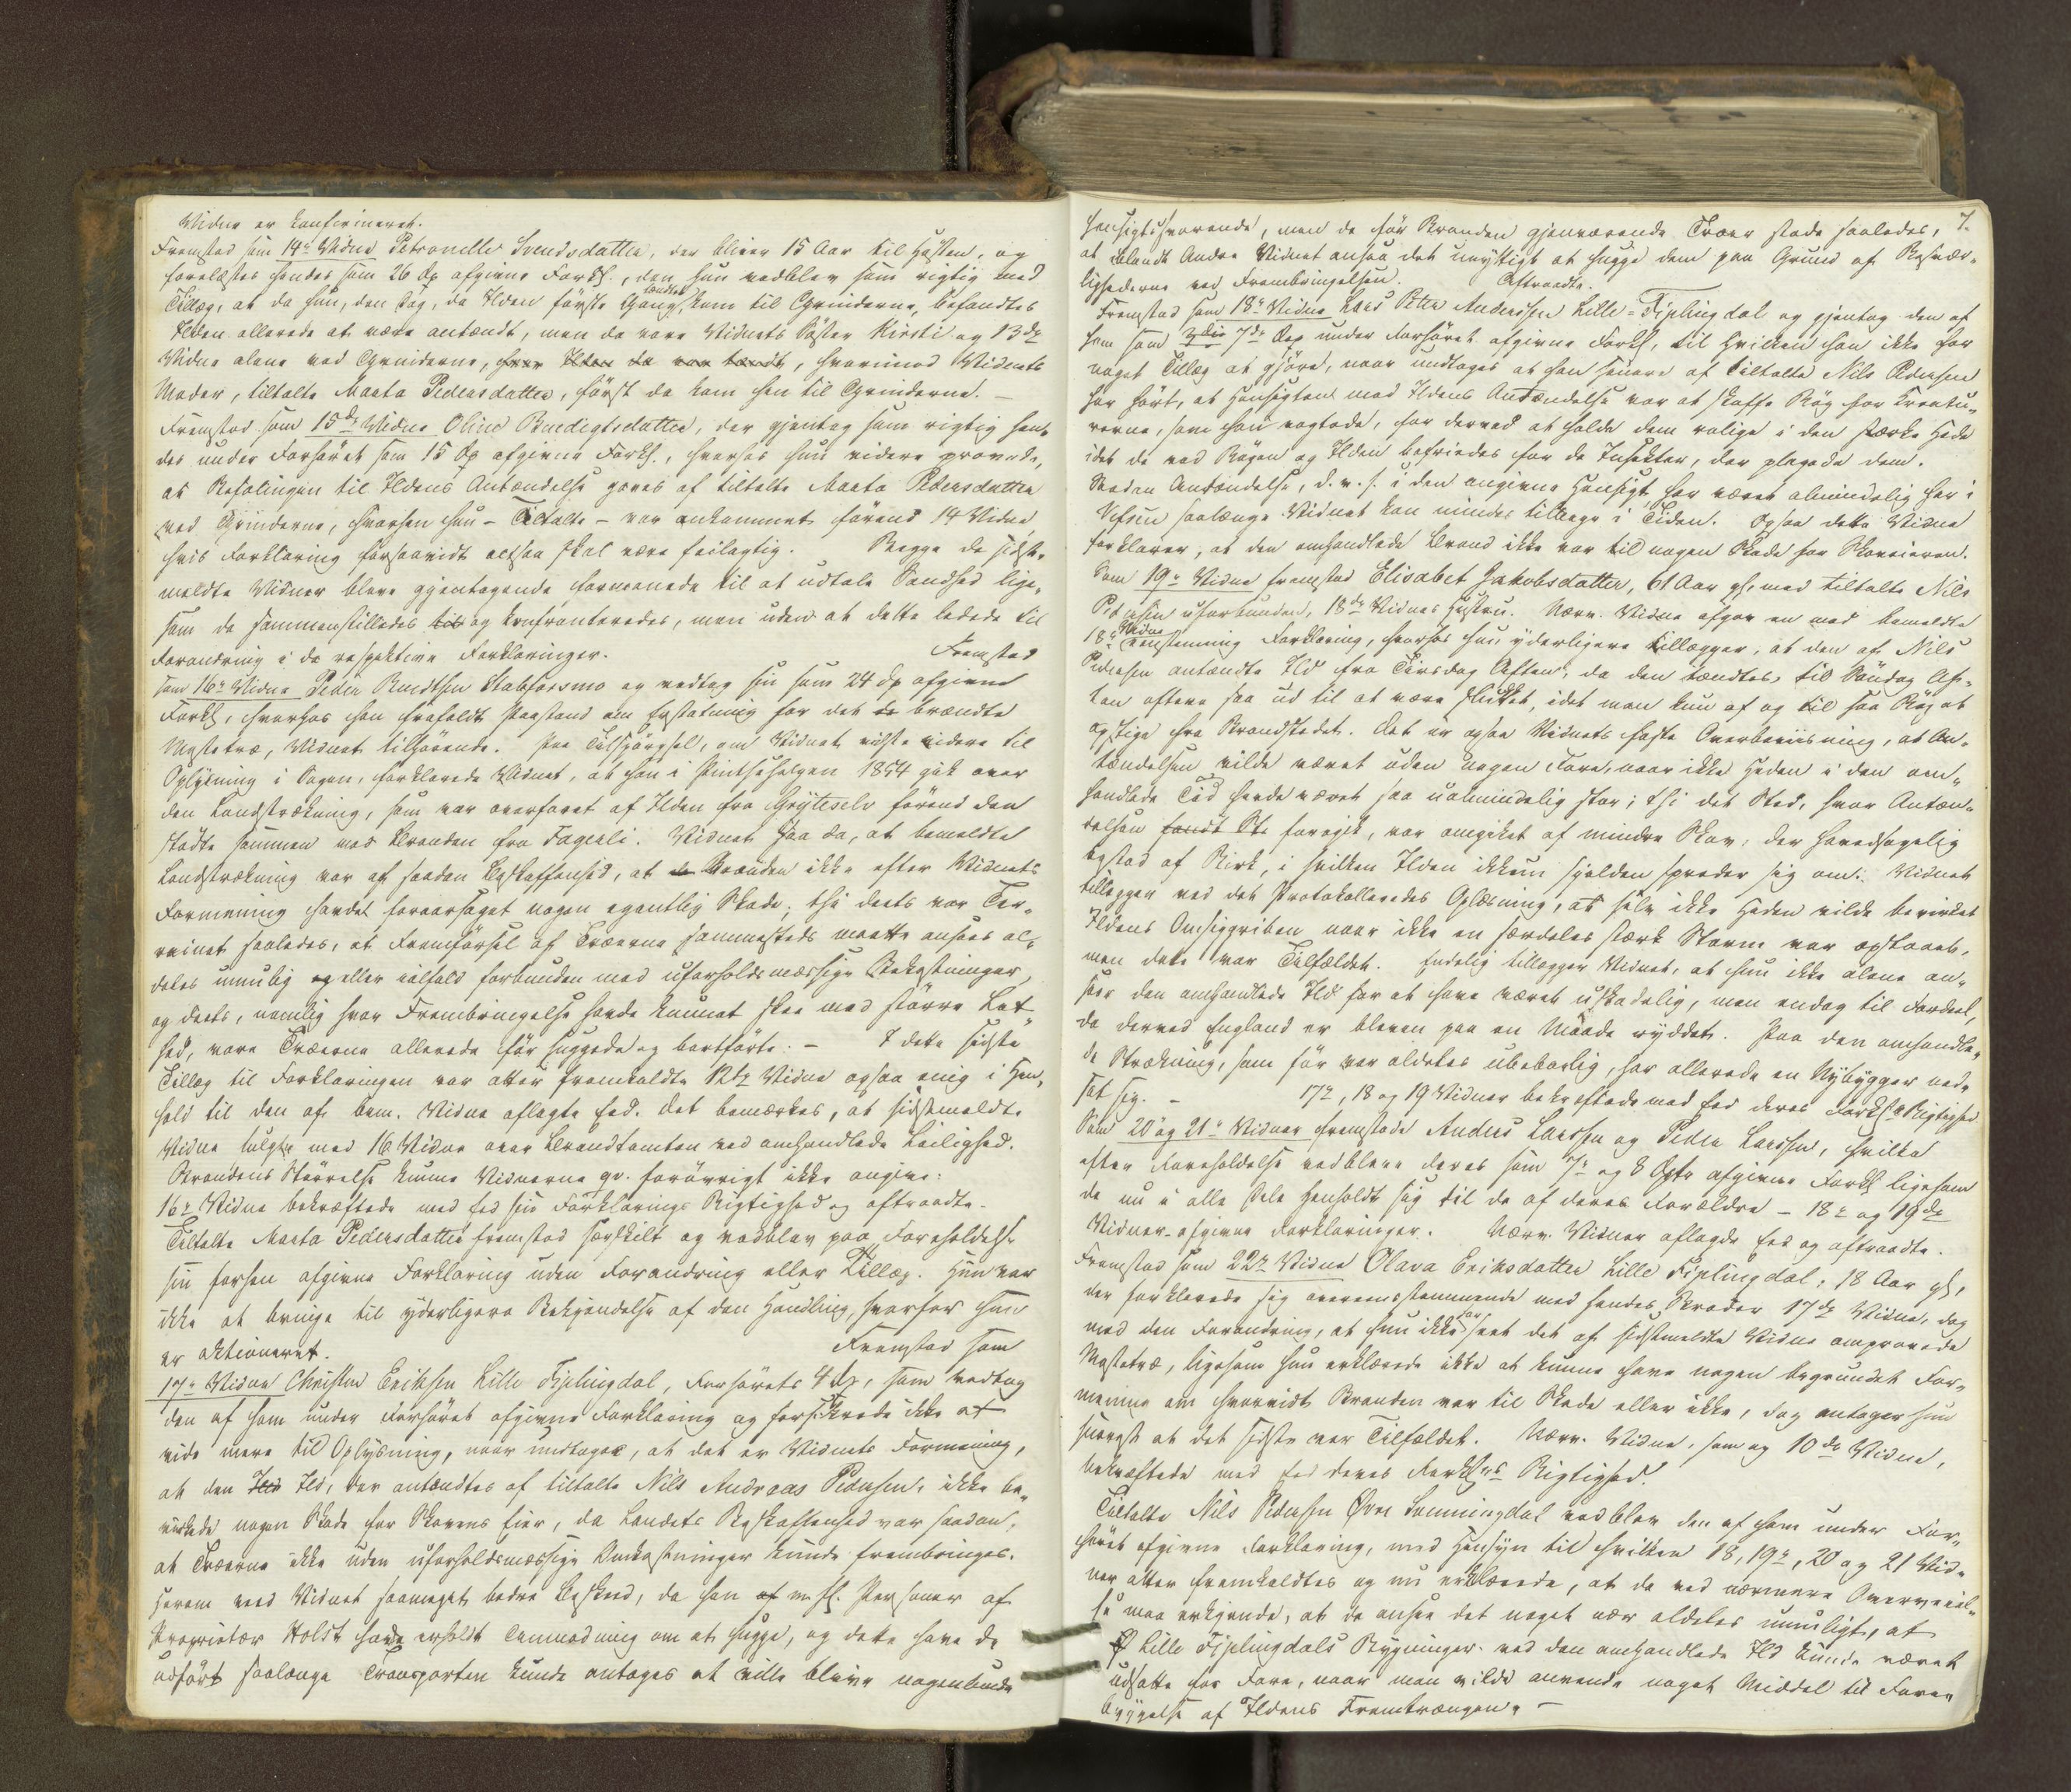 Vidne er konfirmeret.
Fremstod som 14de Vidne Petronelle Svendsdatter, der bliver 15 Aar til Høsten, og
forelæstes hendes som 26 Dp afgivne Forkl., den hun vedblev som rigtig med
Tillæg, at da hun, den Dag, da Ilden første Gang tændtes, kom til Grinderne, befandtes
Ilden allerede at være antændt, men da vare Vidnets Søster Kirsti og 13de
Vidne alene ved Grinderne, hvor Ilden da var tændt, hvorimod Vidnets
Moder, tiltalte Marta Pedersdatter, først da kom hen til Grinderne. –
Fremstod som 15de Vidne Oline Benedigtsdatter, der gjentog som rigtig hen-
des under Forhøret som 15 Dp afgivne Forkl., hvorhos hun videre provede,
at Befalingen til Ildens Antændelse gaves af tiltalte Marta Pedersdatter
ved Grinderne, hvorhen hun – Tiltalte – var ankommet førend 14 Vidne
hvis Forklaring forsaavidt altsaa skal være feilagtig. Begge de sidst-
meldte Vidner bleve gjentagende formanede til at udtale Sandhed lige-
som de sammenstilledes til og konfronteredes, men uden at dette ledede til
Forandring i de respektive Forklaringer. Fremstod
som 16de Vidne Peder Bendtsen Stabforsmo og vedtog sin som 24 dp afgivne
Forkl, hvorhos han frafaldt Paastand om Erstatning for det de brændte
Mastetræ, Vidnet tilhørende. Paa Tilspørgsel, om Vidnet vidste videre til
Oplysning i Sagen, forklarede Vidnet, at han i Pintsehelgen 1854 gik over
den Landstrækning, som var overfaret af Ilden fra Gryteselv førend den
stødte sammen med Branden fra Fagerli. Vidnet saa da, at bemeldte
Landstrækning var af saadan Beskaffenhed, at de Branden ikke efter Vidnets
Formening havde foraarsaget nogen egentlig Skade; thi deels var Ter-
rainet saaledes, at Fremførsel af Træerne sammesteds maatte ansees al-
deles umulig og eller ialfald forbunden med uforholdsmæssige Bekostninger,
og deels, nemlig hvor Frembringelse havde kunnet skee med større Let-
hed, vare Træerne allerede før huggede og bortførte. – I dette sidste
Tillæg til Forklaringen var atter fremkaldte 12te Vidne ogsaa enig i Hen-
hold til den af bem. Vidne aflagte Eed. Det bemærkes, at sidstmeldte
Vidne fulgte med 16 Vidne over Brandtomten ved omhandlede Leilighed.
Brandens Størrelse kunne Vidnerne gr. forøvrigt ikke angive.
16de Vidne bekræftede med Eed sin Forklarings Rigtighed og aftraadte.
Tiltalte Marta Pedersdatter fremstod særskilt og vedblev paa Foreholdelse
sin forhen afgivne Forklaring uden Forandring eller Tillæg. Hun var
ikke at bringe til yderligere Bekjendelse af den Handling, hvorfor hun
er aktioneret. Fremstod som
17de Vidne Christen Eriksen Lille Fiplingdal, Forhørets 4 dp, som vedtog
den af ham under Forhøret afgivne Forklaring og forsikrede ikke at
vide mere til Oplysning, naar undtages, at det er Vidnets Formening,
at den Ild Ild, der antændtes af tiltalte Nils Andreas Pedersen, ikke be-
virkede nogen Skade for Skovens Eier, da Landets Beskaffenhed var saadan,
at Træerne ikke uden uforholdsmæssige Omkostninger kunde frembringes.
herom veed Vidnet saameget bedre Besked, da han af m. fl. Personer af
Proprietær Holst have erholdt Anmodning om at hugge, og dette have de
udført saalænge Transporten kunde antages at ville blive nogenlunde
7.
hensigtssvarende, men de før Branden gjenværende Træer stode saaledes,
at blandt Andre Vidnet ansaa det unyttigt at hugge dem paa Grund af Besvær-
lighederne ved Frembringelsen. Aftraadte.
Fremstod som 18de Vidne Lars Peter Anderssen Lille-Fiplingdal og gjentog den af
ham som 7de Dep under Forhøret afgivne Forkl, til hvilken han ikke har
noget Tillæg at gjøre, naar undtages at han senere af tiltalte Nils Pedersen
har hørt, at Hensigten med Ildens Antændelse var at skaffe Røg for Kreatu-
rerne, som han vogtede, for derved at holde dem rolige i den stærke Hede
idet de ved Røgen og Ilden befriedes for de Insekter, der plagede dem.
Saadan Antændelse, d. v. s. i den angivne Hensigt, har været almindelig her i
Vefsen saalænge Vidnet kan mindes tilbage i Tiden. Ogsaa dette Vidne
forklarer, at den omhandlede Brand ikke var til nogen Skade for Skoveieren.
Som 19de Vidne fremstod Elisabet Jakobsdatter, 61 Aar gl, med tiltalte Nils
Pedersen uforbunden, 18de Vidnes Hustru. Nærv. Vidne afgav en med bemeldte
18de Vidne eenstemmig Forklaring, hvorhos hun yderligere tillægger, at den af Nils
Pedersen antændte Ild fra Tirsdag Aften, da den tændtes, til Søndag Af-
ten oftere saa ud til at være slukket, idet man kun af og til saa Røg at
opstige fra Brandstedet. Det er ogsaa Vidnets faste Overbeviisning, at An-
tændelsen vilde været uden nogen Fare, naar ikke Heden i den om-
handlede Tid havde været saa ualmindelig stor; thi det Sted, hvor Antæn-
delsen fandt St. foregik, var omgivet af mindre Skov, der hovedsagelig
bestod af Birk, i hvilken Ilden ikkun sjelden spreder sig om. Vidnet
tillægger ved det Protokolleredes Oplæsning, at selv ikke Heden vilde bevirket
Ildens Omsiggriben naar ikke en særdeles stærk Storm var opstaaet,
men dette var Tilfældet. Endelig tillægger Vidnet, at hun ikke alene an-
seer den omhandlede Ild for at have været uskadelig, men endog til Fordeel,
da derved England er bleven paa en Maade ryddet. Paa den omhandle-
de Strækning, som før var aldeles ubeboelig, har allerede en Nybygger ned-
sat sig. – 17de, 18 og 19 Vidner bekræftede med Eed deres Forkls Rigtighed
Som 20 og 21de Vidner fremstode Anders Larssen og Peder Larssen, hvilke
efter Foreholdelse vedbleve deres som 7de og 8 Dpte afgivne Forkl ligesom
de nu i alle Dele henholdt sig til de af deres Forældre – 18de og 19de
Vidner – afgivne Forklaringer. Nærv. Vidner aflagde Eed og aftraadte.
Fremstod som 22de Vidne Olava Eriksdatter Lille Fiplingdal, 18 Aar gl,
der forklarede sig overensstemmende med hendes Broder 17de Vidne, dog
med den Forandring, at hun ikke har seet det af sidstmeldte Vidne omprovede
Mastetræ, ligesom hun erklærede ikke at kunne have nogen begrundet For-
mening om hvorvidt Branden var til Skade eller ikke, dog antager hun
snarest at det sidste var Tilfældet. Nærv. Vidne, som og 10de Vidne,
bekræftede med Eed deres Forkls Rigtighed.
Tiltalte Nils Pedersen Øvre Svenningdal vedblev den af ham under For-
høret afgivne Forklaring, med Hensyn til hvilken 18, 19de, 20 og 21 Vid-
ner atter fremkaldtes og nu erklærede, at de ved nærmere Overveiel-
se maa erkjende, at de ansee det noget nær aldeles umuligt, at
Lille Fiplingdals Bygninger ved den omhandlede Ild kunde været
udsatte for Fare, naar man vilde anvende noget Middel til Fore-
byggelse af Ildens Fremtrængen. –